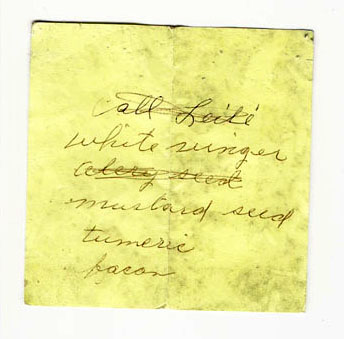 Call Leité
white vinger
celery seed
mustard seed
tumeric
bacon